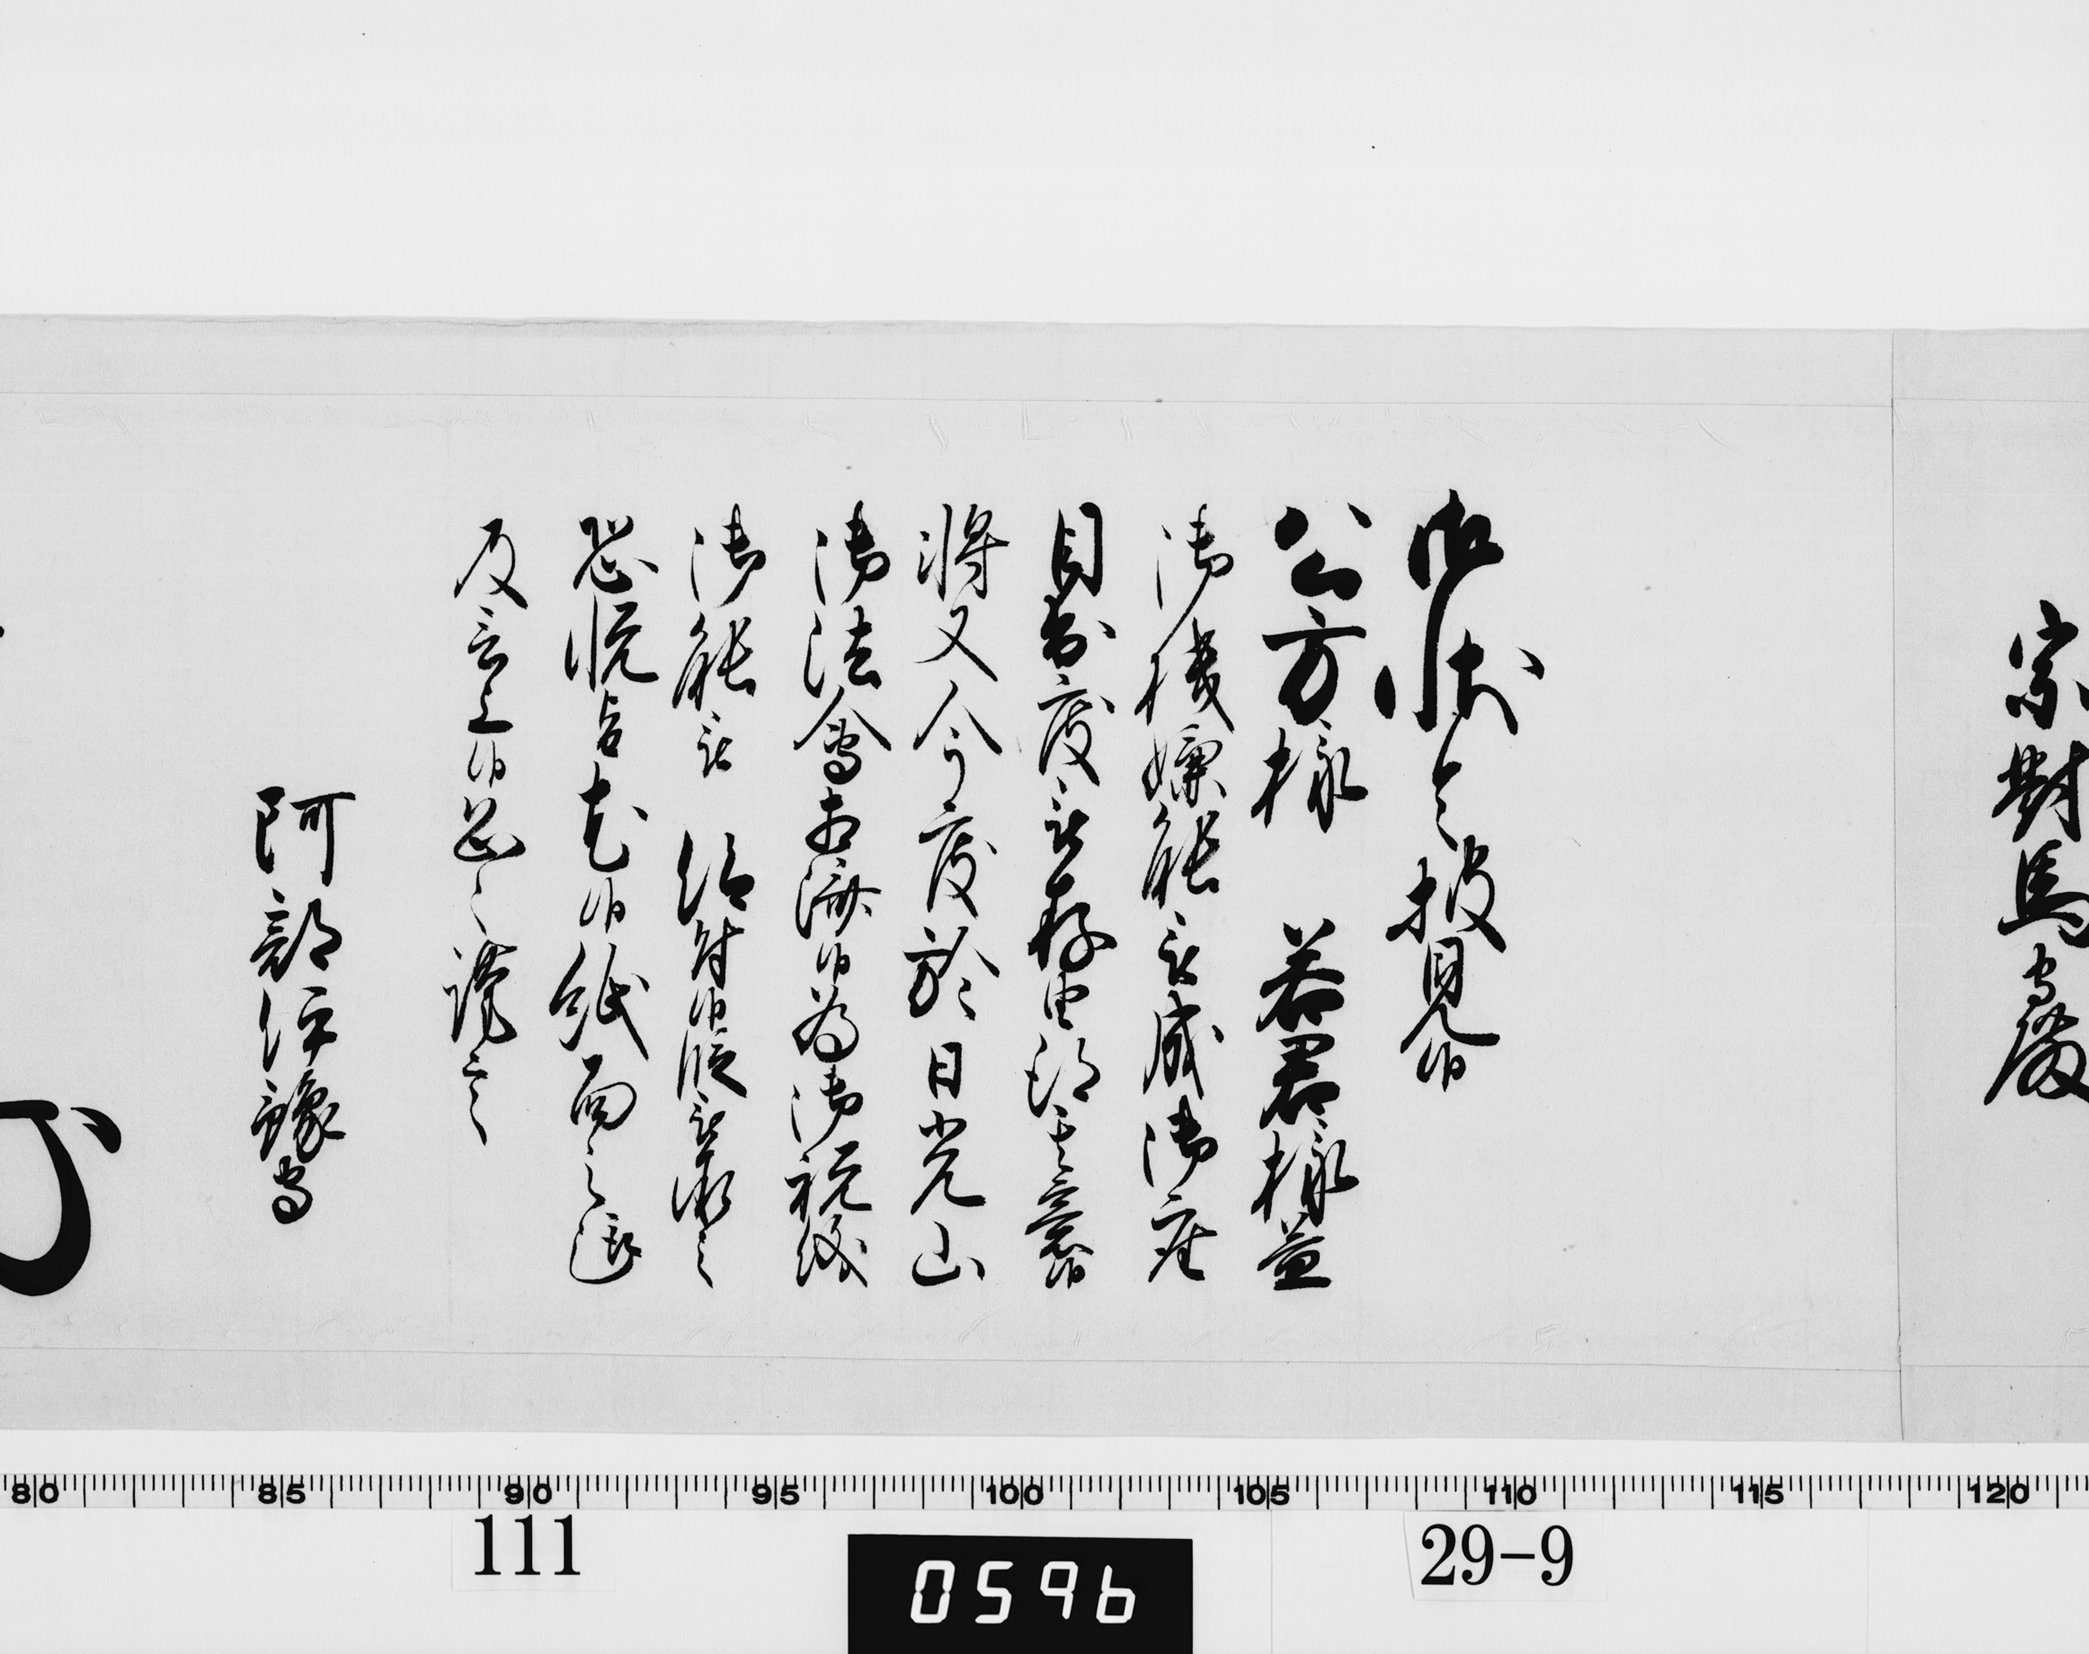 宗對馬守殿
御状令披見候
公方様 若君様益
御機嫌能被成御座
目出度被存由得其意候
将又今度於日光山
御法會相濟候為御祝儀
御能被 仰付候段被承之
恐悦旨尤候紙面之趣
及言上候恐々謹言
阿部伊豫守
80 85 90 95 100 105 110 115 120
111
0596
29-9